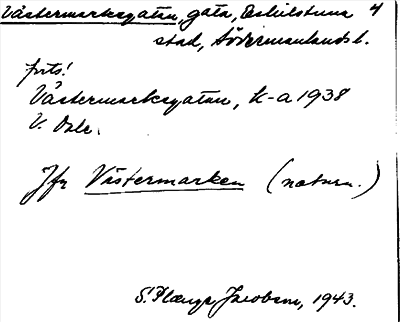 Västermarksgatan, gata, Eskilstuna 4
stad, Södermanlands l.
forts!
Västermarksgatan, k-a 1938
V.
Jfr Västermarken (naturn.)
S. Plænge Jacobson, 1943.